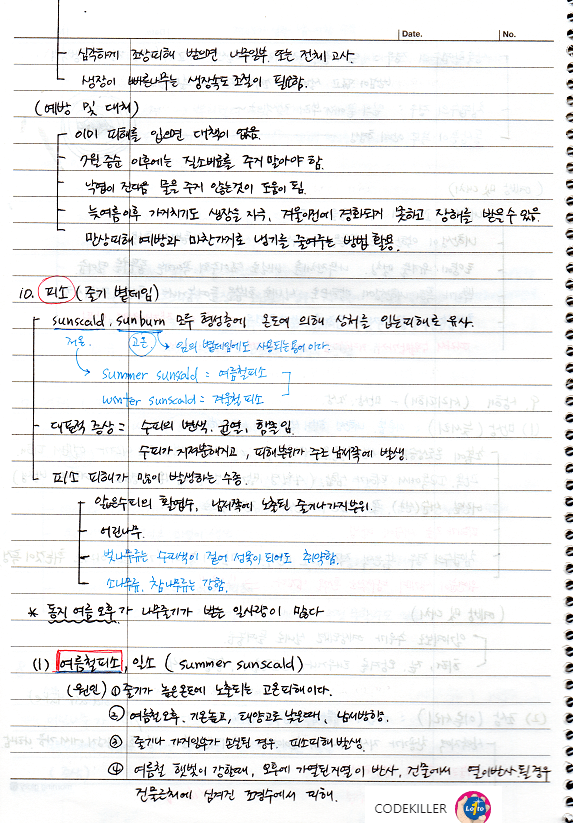 Date. No.
심각하게 조상피해 받으면 나무일부 또는 전체 고사.
생장이 빠른나무는 생장속도 조절이 필요함.
(예방 및 대처)
이미 피해를 입으면 대책이 없음.
7월 중순 이후에는 질소비료를 주지 말아야 함.
낙엽이 진다음 물을 주지 않는것이 도움이 됨.
늦여름이후 가지치기도 생장을 지속, 겨울이전에 경화되지 못하고 장해를 받을수 있음
만상피해 예방과 마찬가지로 냉기를 줄여주는 방법 활용.
10. 피소 (줄기 볕데임)
sunscald, sunburn 모두 형성층에 온도에 의해 상처를 입는피해로 유사.
저온 고온 → 잎의 볕데임에도 사용되는용어이다.
summer sunscald = 여름철피소
winter sunscald = 겨울철 피소
대표적 증상 = 수피의 변색, 균열, 함몰 임.
수피가 지저분해지고, 피해부위가 주로 남서쪽에 발생.
피소 피해가 많이 발생하는 수종
얇은수피의 활엽수, 남서쪽에 노출된 줄기나가지부위.
어린나무.
벚나무류는 수피색이 짙어 성목이 되어도 취약함.
소나무류, 참나무류는 강함.
* 동지 여름 오후가 나무줄기가 받는 일사량이 많다
(1) 여름철피소, 일소 (summer sunscald)
(원인) ① 줄기가 높은온도에 노출되는 고온피해이다.
② 여름철오후, 기온높고, 태양고도 낮은때, 남서방향.
③ 줄기나 가지일부가 손실된 경우 피소피해발생.
④ 여름철 햇빛이 강한때, 오후에 가열된지열이 반사, 건물에서 열이반사될경우
건물근처에 심겨진 조경수에서 피해.
CODEKILLER
Lotto